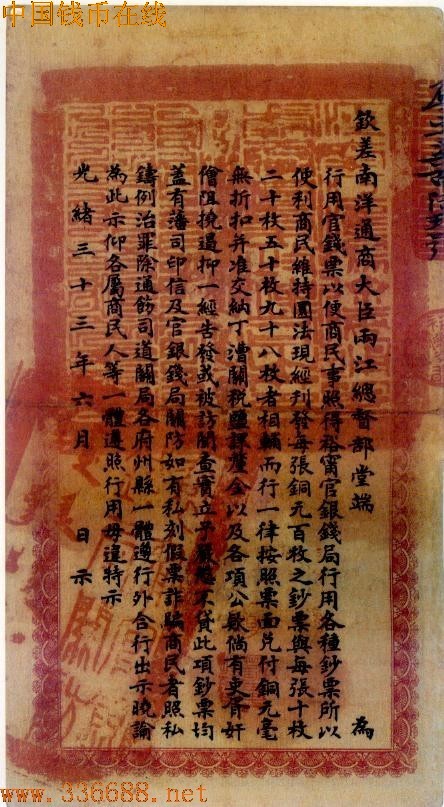 中国钱币在线
欽差南洋通商大臣兩江總督部堂端 為
行用官錢票以便商民事照得裕甯官銀錢局行用各種鈔票所以
便利商民維持圜法現經刋發每張銅元百枚之鈔票與每張十枚
二十枚五十枚九十八枚者相輔而行一律按照票面兌付銅元毫
無折扣并准交納丁漕關稅鹽課厘金以及各項公款倘有吏胥奸
儈阻撓逼抑一經告發或被訪聞查實立予嚴懲不貸此項鈔票均
蓋有藩司印信及官銀錢局關防如有私刻假票詐騙商民者照私
鑄例治罪除通飭司道關局各府州縣一體遵行外合行出示曉諭
為此示仰各屬商民人等一體遵照行用毋違特示
光緒三十三年六月 日示
www.336688.net